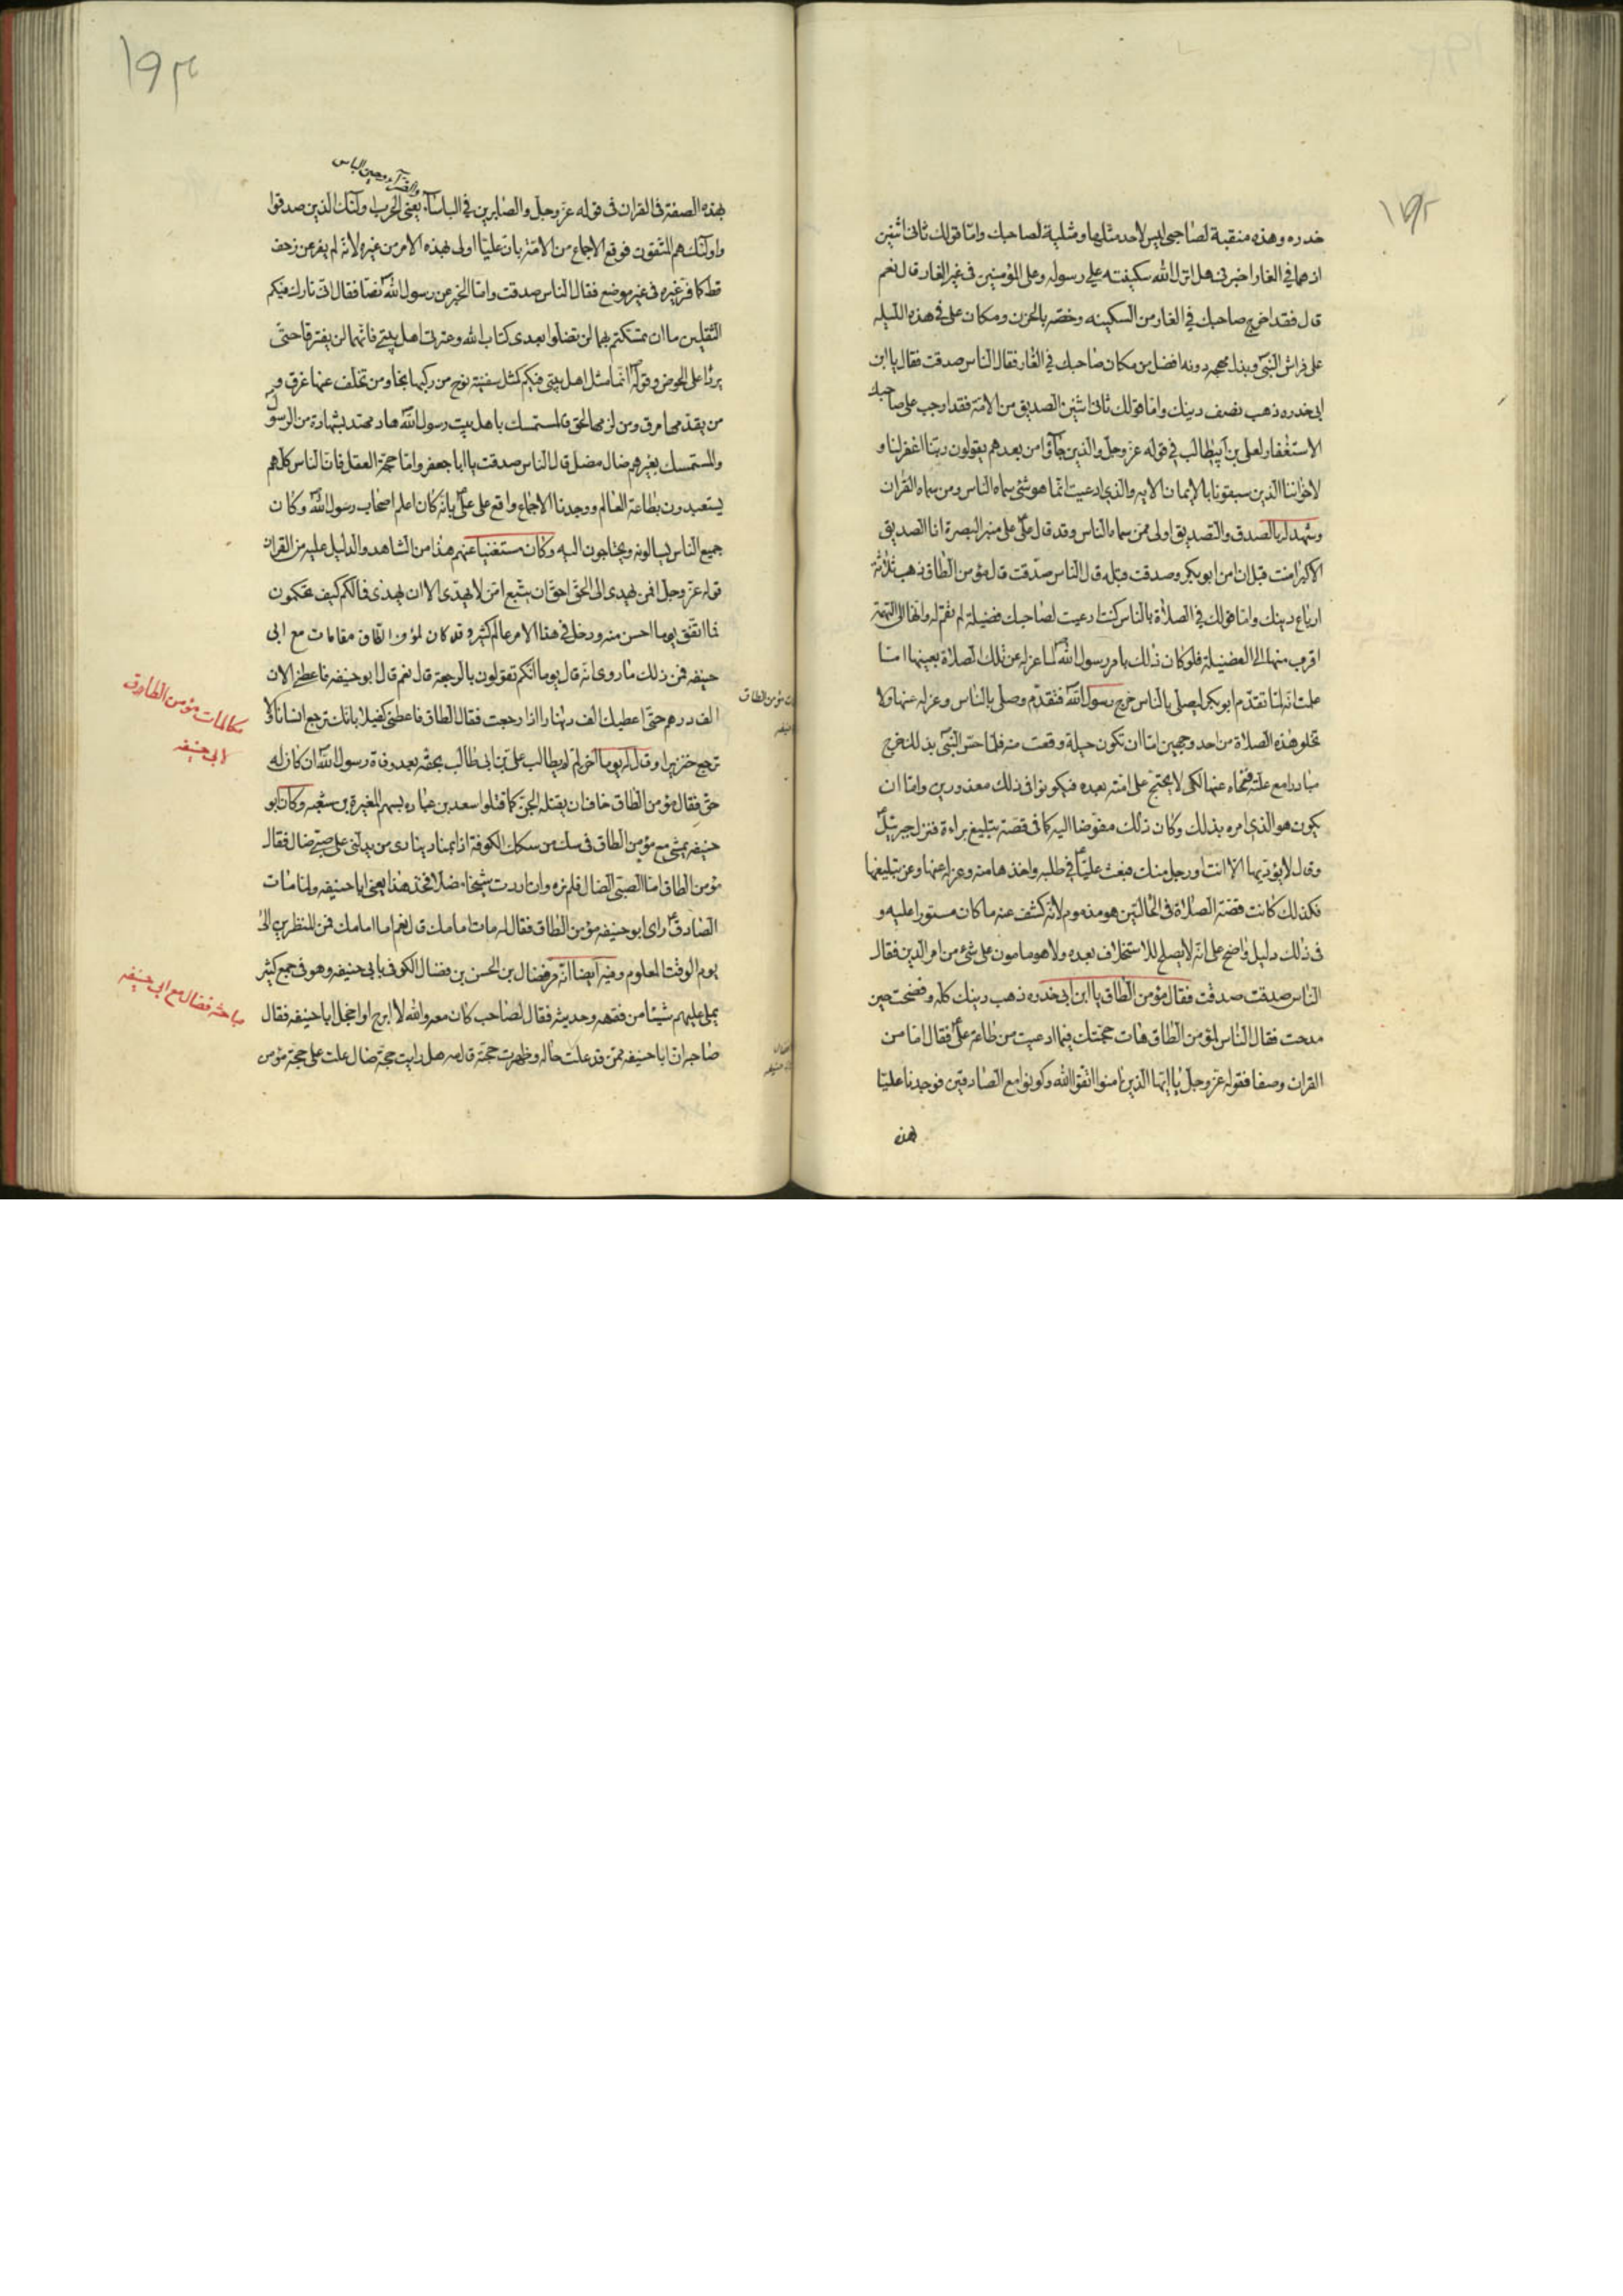 ١٩٢
خدره وهذه منقبة لصاحبى ليس لاحد مثلها ومثلبة لصاحبك وامّا قولك ثانى اثنين
اذ هما فى الغار اخبرنى هل انزل الله سكينته على رسوله وعلى المؤمنين فى غير الغار قال نعم
قال فقد اخرج صاحبك فى الغار من السكينه وخصّه بالحزن ومكان على فى هذه الليله
على فراش النبى وبذل مهجه دونه افضل من مكان صاحبك فى الغار فقال الناس صدقت فقال يا ابن
ابى خدره ذهب نصف دينك وامّا قولك ثانى اثنين الصديق من الامّة فقد اوجب على صاحبك
الاستغفار لعلى بن ابيطالب فى قوله عزّ وجلّ والذين جاؤا من بعدهم يقولون ربّنا اغفر لنا و
لاخواننا الذين سبقونا بالايمان الايه والذى ادعيت انّما هو شئ سماه الناس ومن سماه القران
وشهد له بالصدق والتصديق اولى ممّن سماه الناس وقد قال علىّ على منبر البصرة انا الصديق
الاكبر امنت قبل ان امن ابو بكر وصدقت قبله قال الناس صدقت قال مؤمن الطاق ذهب ثلاثة
ارباع دينك وامّا قولك فى الصلاة بالناس كنت ادعيت لصاحبك فضيلة لم تقم له وانها الى التهمة
اقرب منها الى الفضيلة فلو كان ذلك بامر رسول الله لما عزله عن تلك الصلاة بعينها امّا
علمت انه لمّا تقدّم ابو بكر ليصلى بالناس خرج رسول الله فتقدّم وصلى بالناس وعزله عنها ولا
تخلو هذه الصلاة من احد وجهين امّا ان تكون حيلة وقعت منه فلما حسّ النبى بذلك خرج
مبادرا مع علته فنحاه عنها لكى لا يحتج على امته بعده فيكونوا فى ذلك معذورين وامّا ان
يكون هو الذى امره بذلك وكان ذلك مفوّضا اليه كما فى قصة تبليغ براءة فنزل جبرئيل
وقال لا يؤديها الّا انت او رجل منك فبعث عليّا فى طلبه واخذها منه وعزله عنها وعن تبليغها
فكذلك كانت قصة الصلاة فى الحالتين هو مذموم لانّه كشف عنه ما كان مستورا عليه و
فى ذلك دليل واضح على انه لا يصلح للاستخلاف بعده ولا هو مامون على شئ من امر الدين فقال
الناس صدقت صدقت فقال مؤمن الطاق يا ابن ابى خدره ذهب دينك كله وفضحت حين
مدحت فقال الناس لمؤمن الطاق هات حجّتك فيما ادعيت من طاعة علىّ فقال امّا من
القران وصفا فقوله عزّ وجلّ يا ايّها الذين امنوا اتّقوا الله وكونوا مع الصادقين فوجدنا عليّا
هذه
١٩٣
والضرّاء وحين الباس
بهذه الصفة فى القران فى قوله عزّ وجلّ والصابرين فى الباساء يعنى الحرب اولئك الذين صدقوا
واولئك هم المتّقون فوقع الاجماع من الامّة بانّ عليّا اولى بهذه الامر من غيره لانّه لم يفر عن زحف
قط كما فر غيره فى غير موضع فقال الناس صدقت وامّا الخبر عن رسول الله نصّا فقال انى تارك فيكم
الثقلين ما ان تمسّكتم بهما لن تضلوا بعدى كتاب الله وعترتى اهل بيتى فانّهما لن يفترقا حتّى
يردا على الحوض وقوله انّما مثل اهل بيتى فيكم كمثل سفينة نوح من ركبها نجا ومن تخلف عنها غرق و
من تقدّمها مرق ومن لزمها لحق فالمستمسك باهل بيت رسول الله هاد مهتد بشهادة من الرسول
والمستمسك بغيرهم ضال مضل قال الناس صدقت يا ابا جعفر وامّا حجّة العقل فانّ الناس كلّهم
يستعبدون بطاعة العالم ووجدنا الاجماع واقع على علىّ بانّه كان اعلم اصحاب رسول الله وكان
جميع الناس يسالونه ويحتاجون اليه وكان مستغنيا عنهم هذا من الشاهد والدليل عليه من القران
قوله عزّ وجلّ افمن يهدى الى الحقّ احق ان يتّبع امّن لا يهدّى الا ان يهدى فما لكم كيف تحكمون
فما اتفق يوما احسن منه ودخل فى هذا الامر عالم كثير وقد كان لمؤمن الطاق مقامات مع ابى
حنيفه فمن ذلك ما روى انه قال يوما انّكم تقولون بالرجعة قال نعم قال ابو حنيفه فاعطنى الان
الف درهم حتى اعطيك الف دينار اذا رجعت فقال الطاق فاعطنى كفيلا بانك ترجع انسانا ولا
ترجع خنزيرا وقال له يوما اخر لم لم يطالب علىّ بن ابى طالب بحقّه بعد وفاة رسول الله ان كان له
حقّ فقال مؤمن الطاق خاف ان يقتله الجنّ كما قتلوا سعد بن عباده بسهم المغيرة بن شعبه وكان ابو
حنيفه يمشى مع مؤمن الطاق فى سكّ من سكك الكوفة اذا بمناد ينادى من يدلّنى على صبى ضال فقال
مؤمن الطاق امّا الصبى الضال فلم نره وان اردت شيخا ضالا فخذ هذا يعنى ابا حنيفه ولما مات
الصادق راى ابو حنيفه مؤمن الطاق فقال له مات امامك قال نعم اما امامك فمن المنظرين الى
يوم الوقت المعلوم وفيه ايضا انّه مر فضال بن الحسن بن فضال الكوفى بابى حنيفه وهو فى جمع كثير
يملى عليهم شيئا من فقهه وحديثه فقال لصاحب كان معه والله لا ابرح او اخجل ابا حنيفه فقال
صاحبه انّ ابا حنيفه ممّن قد علمت حاله وظهرت حجّته قال مه هل رايت حجّة ضال علت على حجّة مؤمن
مكالمات مؤمن الطاق
ابى حنيفه
مباحثه فضال مع ابى حنيفه
مؤمن الطاق